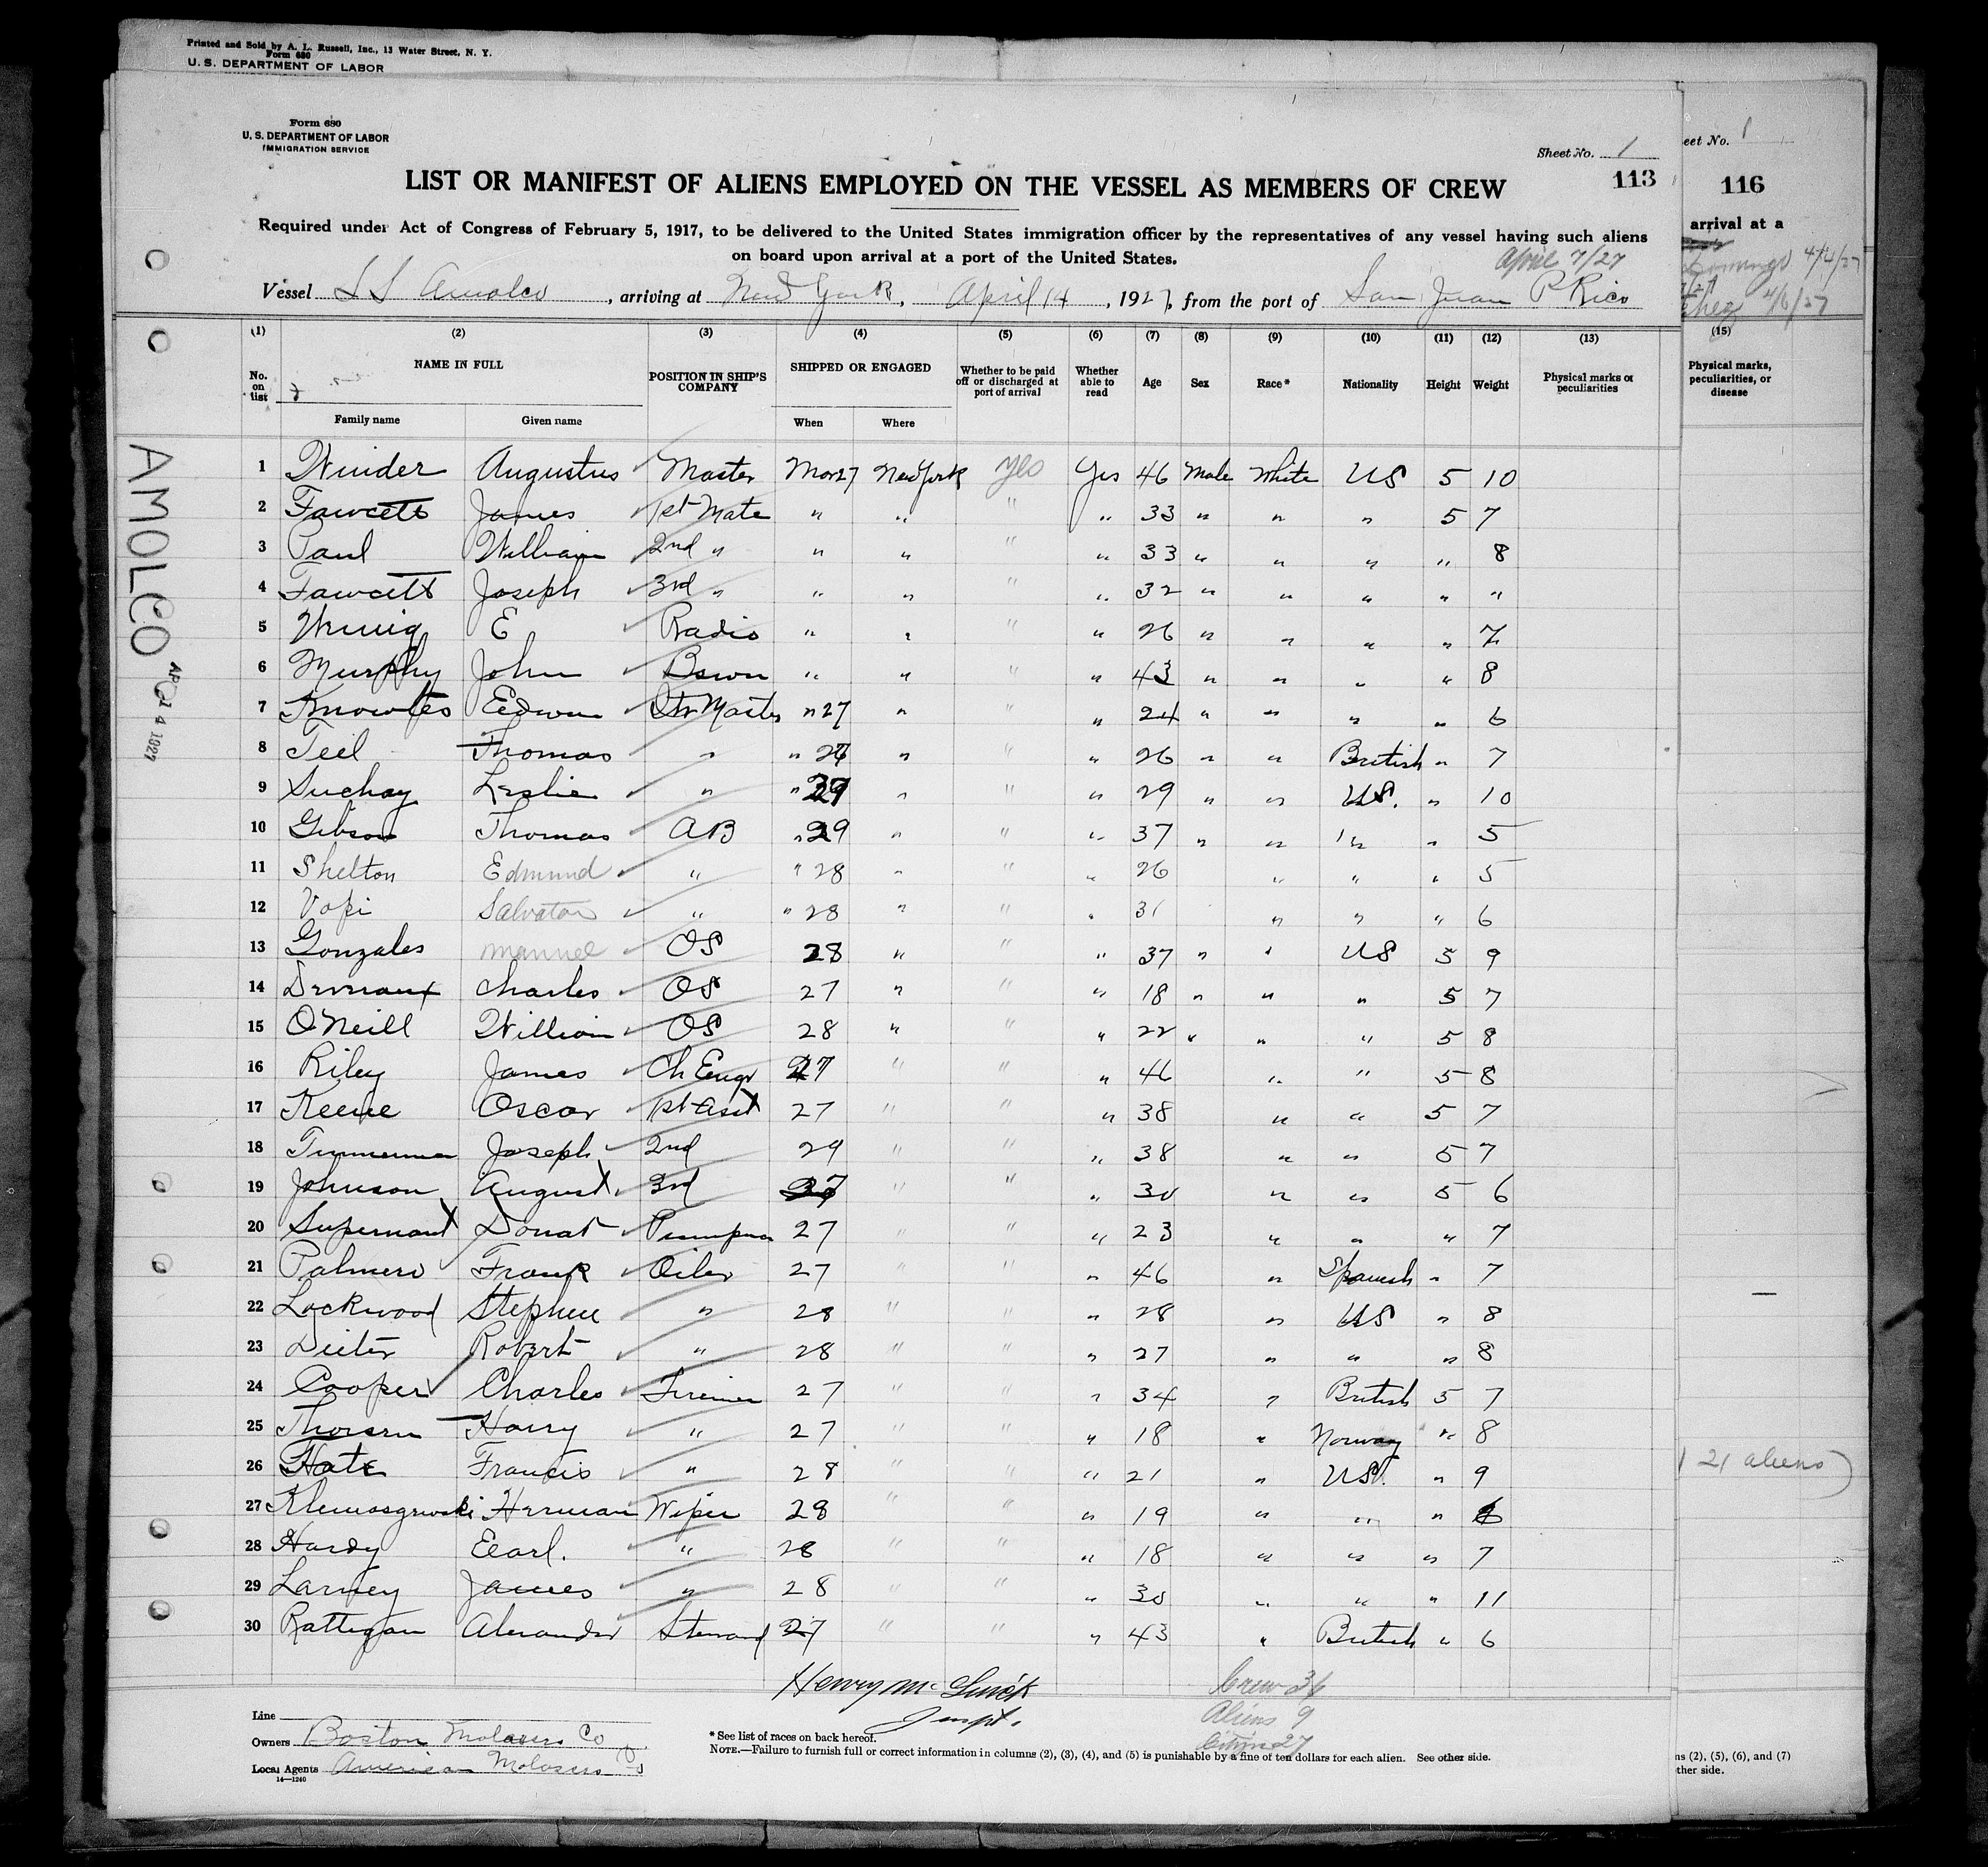 Printed and Sold by A. L. Russell, Inc., 13 Water Street, N. Y.
Form 680
U. S. DEPARTMENT OF LABOR
Form 680
U. S. DEPARTMENT OF LABOR
IMMIGRATION SERVICE
Sheet No. 1
eet No. 1
LIST OR MANIFEST OF ALIENS EMPLOYED ON THE VESSEL AS MEMBERS OF CREW
113
116
Required under Act of Congress of February 5, 1917, to be delivered to the United States immigration officer by the representatives of any vessel having such aliens
arrival at a
on board upon arrival at a port of the United States.
April 7/27
4/4/27
Vessel SS Amolco, arriving at New York, April 14, 1927, from the port of San Juan P Rico
4/6/27
(1) (2) (3) (4) (5) (6) (7) (8) (9) (10) (11) (12) (13)
(15)
No. on list
NAME IN FULL
Family name
Given name
POSITION IN SHIP'S COMPANY
SHIPPED OR ENGAGED
When
Where
Whether to be paid off or discharged at port of arrival
Whether able to read
Age
Sex
Race*
Nationality
Height
Weight
Physical marks or peculiarities
Physical marks, peculiarities, or disease
AMOLCO
1 Winder Augustus Master Mar 27 New York yes Yes 46 Male White US 5 10
2 Fawcett James 1st Mate " " " " 33 " " " 5 7
3 Paul William 2nd " " " " " 33 " " " " 8
4 Fawcett Joseph 3rd " " " " " 32 " " " " "
5 E Radio " " " " 26 " " " " 7
6 Murphy John Bswn " " " " 43 " " " " 8
7 Knowles Edwin Qtr Master " 27 " " " 24 " " " " 6
8 Teil Thomas " " 27 " " " 26 " " British " 7
9 Suchay Leslie " " 29 " " " 29 " " US. " 10
10 Gibson Thomas AB " 29 " " " 37 " " " " 5
11 Shelton Edmund " " 28 " " " 26 " " " 5
12 Vopi Salvator " " 28 " " " 31 " " " 6
13 Gonzales Manuel OS 28 " " " 37 " " US 5 9
14 Charles OS 27 " " " 18 " " " 5 7
15 O'Neill William OS 28 " " " 22 " " " 5 8
16 Riley James Ch Engr 27 " " " 46 " " 5 8
17 Keene Oscar 1st Asst 27 " " " 38 " " 5 7
18 Timmerman Joseph 2nd 29 " " " 38 " " 5 7
19 Johnson August 3rd 27 " " " 30 " " 5 6
20 Supernant Donat Pumpman 27 " " " 23 " " " 7
21 Palmero Frank Oiler 27 " " " 46 " Spanish " 7
22 Lockwood Stephen " 28 " " " 28 " US " 8
23 Dieter Robert " 28 " " " 27 " " " 8
24 Cooper Charles Fireman 27 " " " 34 " British 5 7
25 Thorsen Harry " 27 " " " 18 " Norway " 8
26 Hate Francis " 28 " " " 21 " US. " 9
27 Herman Wiper 28 " " " 19 " " " 6
28 Hardy Eearl. " 28 " " " 18 " " " 7
29 Larney James " 28 " " " 30 " " " 11
30 Rattigan Alexander Steward 27 " " " 43 " British " 6
21 aliens)
Henry Mc Guick
Inspt.
Crew 36
Aliens 9
Citizens 27
Line
Owners Boston Molasses Co
Local Agents American Molasses Co
14—1240
* See list of races on back hereof.
NOTE.—Failure to furnish full or correct information in columns (2), (3), (4), and (5) is punishable by a fine of ten dollars for each alien. See other side.
ns (2), (5), (6), and (7)
ther side.